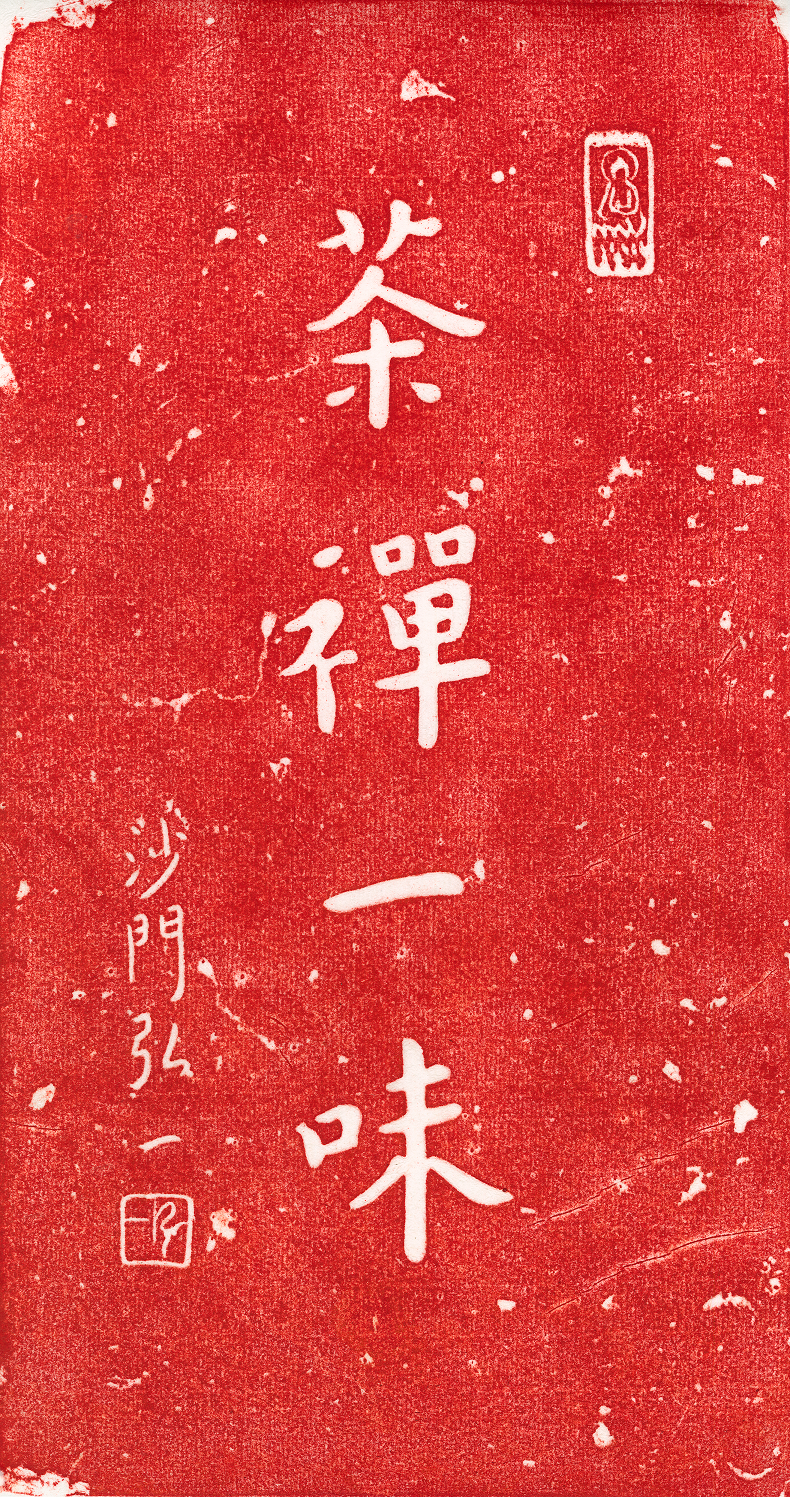 茶禪一味
沙門弘一